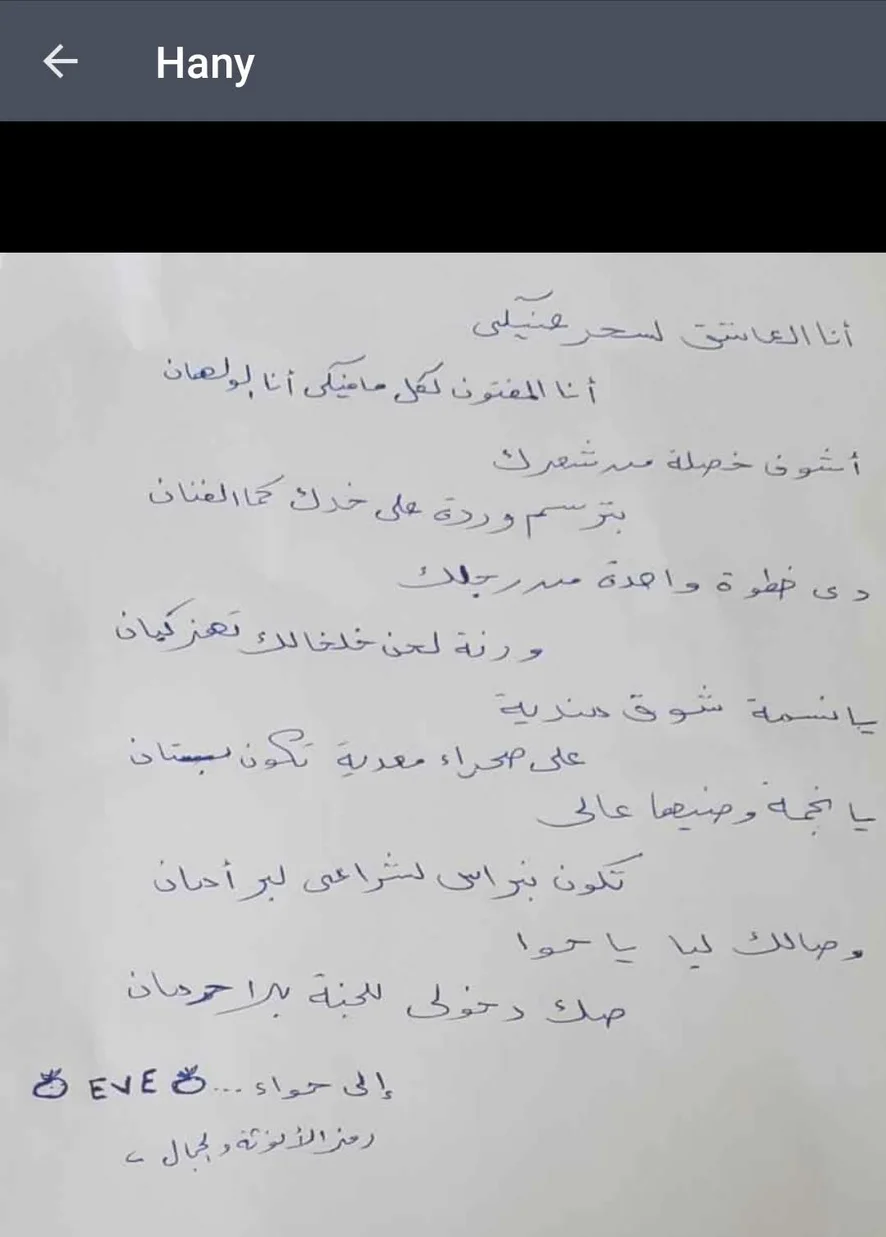 Hany
أنا العاشق لسحر عنيكى
أنا المفتون لكل مافيكى أنا الولهان
أشوف خصلة من شعرك
بترسم وردة على خدك كما الفنان
دى خطوة واحدة من رجلك
ورنة لحن خلخالك تهز كيان
يانسمة شوق هندية
على صحراء معدية تكون بستان
يا نجمة وضيها عالى
تكون نبراس لشراعى لبر أمان
وصالك ليا يا حوا
صك دخولى للجنة بلا حرمان
إلى حواء... EVE
رمز الأنوثة والجمال